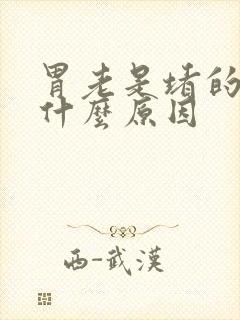 胃老是堵的
什麼原因
西-武漢